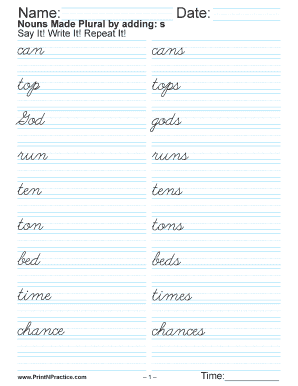 Name: Date:
Nouns Made Plural by adding: s
Say It! Write It! Repeat It!
can cans
top tops
God gods
run runs
ten tens
ton tons
bed beds
time times
chance chances
www.PrintNPractice.com – 1 – Time: